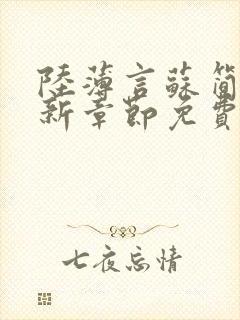 陸薄言蘇簡
新章節免費
七夜忘情